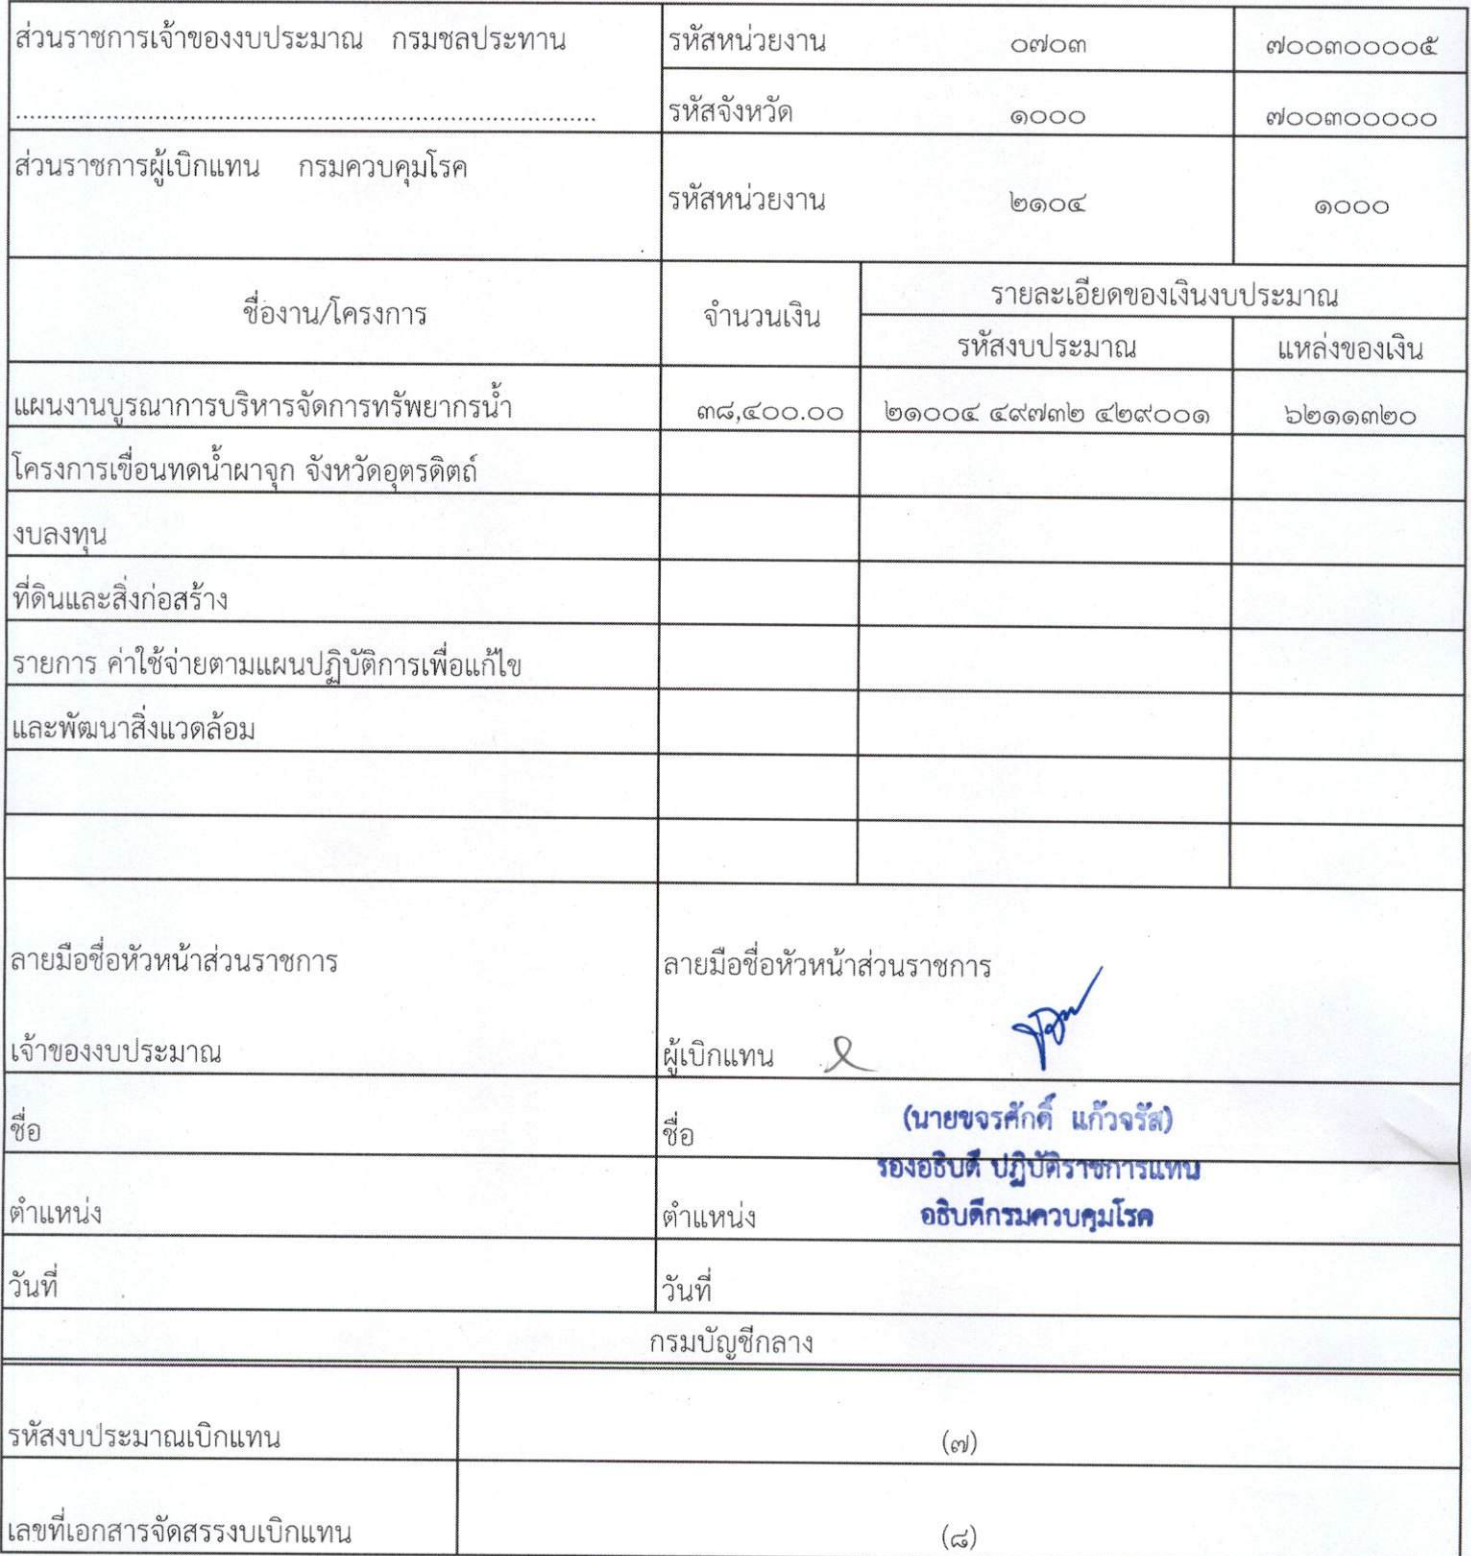 ส่วนราชการเจ้าของงบประมาณ กรมชลประทาน รหัสหน่วยงาน ๐๗๐๓ ๗๐๐๓๐๐๐๐๕
.................................................................................... รหัสจังหวัด ๑๐๐๐ ๗๐๐๓๐๐๐๐๐
ส่วนราชการผู้เบิกแทน กรมควบคุมโรค
รหัสหน่วยงาน ๒๑๐๔ ๑๐๐๐
ชื่องาน/โครงการ จำนวนเงิน รายละเอียดของเงินงบประมาณ
รหัสงบประมาณ แหล่งของเงิน
แผนงานบูรณาการบริหารจัดการทรัพยากรน้ำ ๓๘,๔๐๐.๐๐ ๒๑๐๐๔ ๔๙๗๓๒ ๔๒๙๐๐๑ ๖๒๑๑๓๒๐
โครงการเขื่อนทดน้ำผาจุก จังหวัดอุตรดิตถ์
งบลงทุน
ที่ดินและสิ่งก่อสร้าง
รายการ ค่าใช้จ่ายตามแผนปฏิบัติการเพื่อแก้ไข
และพัฒนาสิ่งแวดล้อม
ลายมือชื่อหัวหน้าส่วนราชการ ลายมือชื่อหัวหน้าส่วนราชการ
เจ้าของงบประมาณ ผู้เบิกแทน
ชื่อ ชื่อ (นายขจรศักดิ์ แก้วจรัส)
รองอธิบดี ปฏิบัติราชการแทน
ตำแหน่ง ตำแหน่ง อธิบดีกรมควบคุมโรค
วันที่ วันที่
กรมบัญชีกลาง
รหัสงบประมาณเบิกแทน (๗)
เลขที่เอกสารจัดสรรงบเบิกแทน (๘)